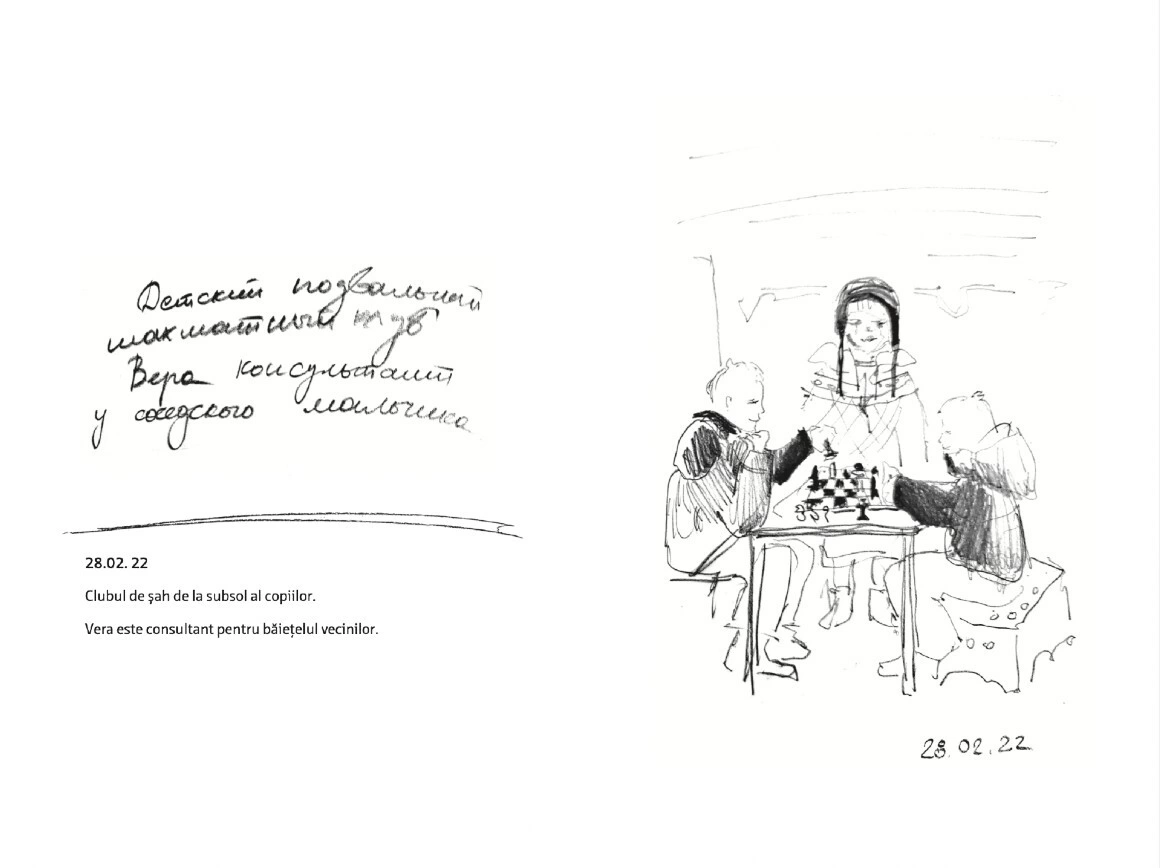 Детский подвальный
шахматный клуб
Вера консультант
у соседского мальчика
28.02. 22
Clubul de șah de la subsol al copiilor.
Vera este consultant pentru băiețelul vecinilor.
28.02.22